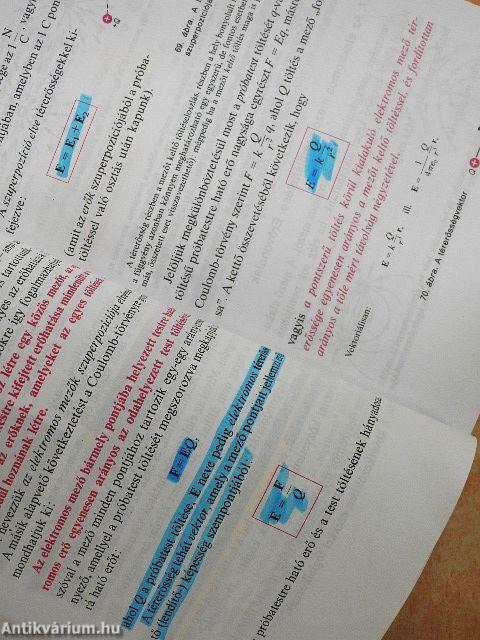 sége az 1 N/C, vagyis
amelyben az 1 C
A szuperpozíció elve térerősségekkel ki-
fejezve:
E = E₁ + E₂
(amit az erők szuperpozíciójából a próba-
töltéssel való osztás után kapunk).
69. ábra. A
szuperpozíciój
A térerősség részben a mezőt keltő töltéseloszlás, részben a hely bonyolult
függvény azonban könnyen meghatározható egy egyszerű, de fontos esetben
más, összetett eset visszavezethető): mégpedig ha a mezőt keltő töltés maga is p
Jelöljük megkülönböztetésül most a próbatest töltését q-va
töltésű próbatestre ható erő nagysága egyrészt F = Eq, másré
Coulomb-törvény szerint F = k Q/r² q, ahol Q töltés a mező „for
sa”. A kettő összevetéséből következik, hogy
E = k Q/r²
vagyis a pontszerű töltés körül kialakuló elektromos mező tér-
erőssége egyenesen arányos a mezőt keltő töltéssel, és fordítottan
arányos a tőle mért távolság négyzetével.
Vektoriálisan:
E = k Q/r³ r, ill. E = 1/4πε₀ Q/r³ r.
70. ábra. A térerősségvektor
Q
az erőhatás
létre egy közös mezőt
kifejtett erőhatása mindenütt
az erőknek, amelyeket az egyes töltések
hoznának létre.
nevezzük az elektromos mezők szuperpozíciója elvé
A másik alapvető következtetést a Coulomb-törvényre
mondhatjuk ki:
Az elektromos mező bármely pontjába helyezett testre ható
romos erő egyenesen arányos az odahelyezett test töltésé
szóval a mező minden pontjához tartozik egy-egy arányos
nyező, amellyel a próbatest töltését megszorozva megkapju
rá ható erőt:
F = EQ,
ahol Q a próbatest töltése, E neve pedig elektromos térerős
A térerősség tehát vektor, amely a mező pontjait jellemzi
tő (lendítő-) képesség szempontjából:
E = F/Q
próbatestre ható erő és a test töltésének hányadosa
Antikvárium.hu